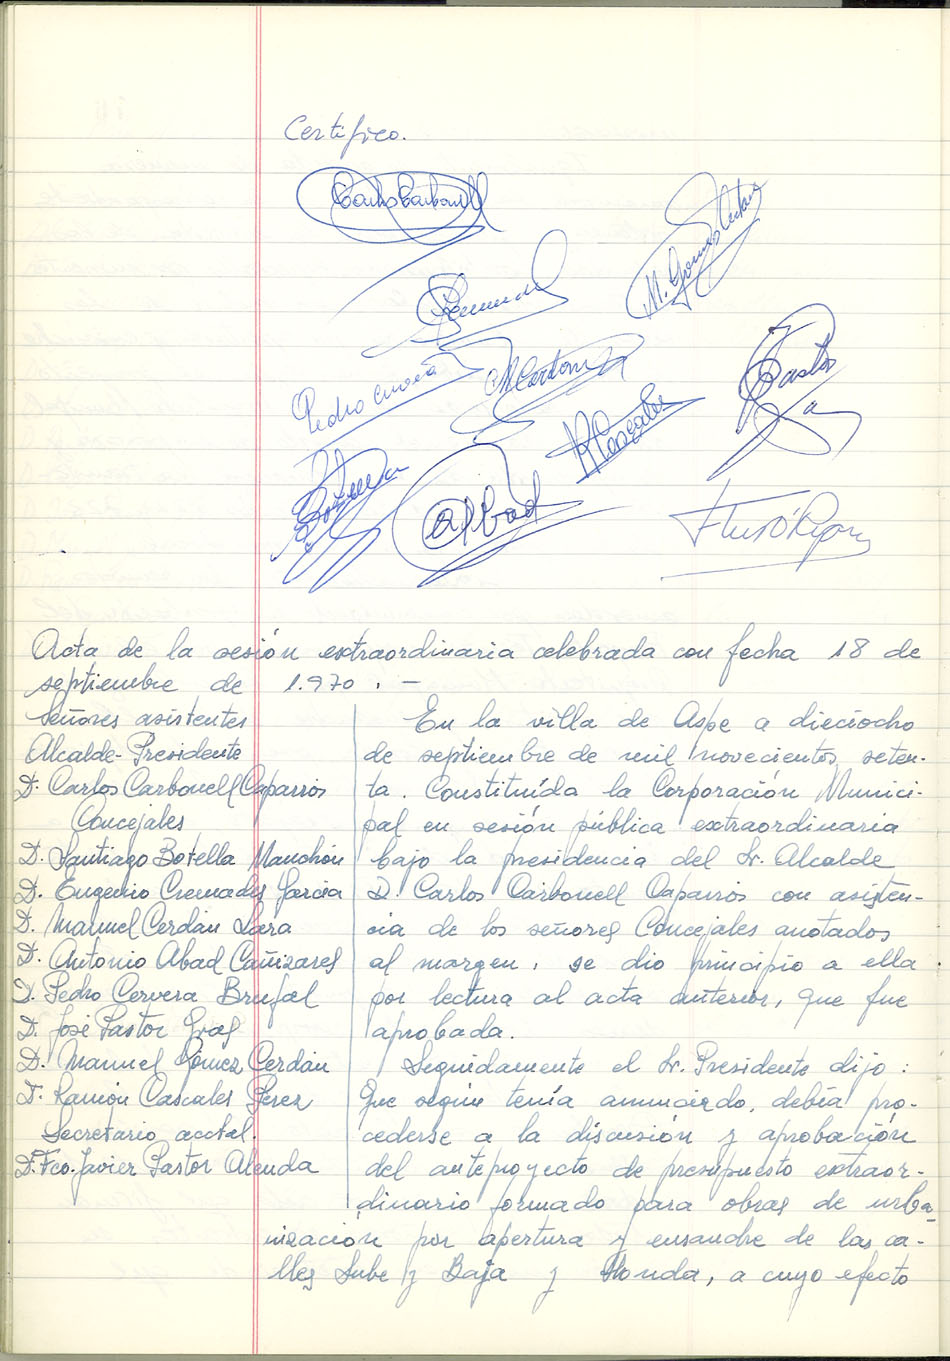 Certifico.
Carlos Carbonell
M. Gomez Cerdan
Pedro Cervera
M Cerdan
Pastor
R Cascales
A Abad
Acta de la sesión extraordinaria celebrada con fecha 18 de
septiembre de 1.970. -
Señores asistentes
Alcalde-Presidente
D. Carlos Carbonell Caparrós
Concejales
D. Santiago Botella Manchón
D. Eugenio Cremades García
D. Manuel Cerdán Lara
D. Antonio Abad Cañizares
D. Pedro Cervera Brufal
D. José Pastor Gras
D. Manuel Gómez Cerdán
D. Ramón Cascales Pérez
Secretario acctal.
D. Fco. Javier Pastor Alenda
En la villa de Aspe a dieciocho
de septiembre de mil novecientos seten-
ta. Constituída la Corporación Munici-
pal en sesión pública extraordinaria
bajo la presidencia del Sr. Alcalde
D. Carlos Carbonell Caparrós con asisten-
cia de los señores Concejales anotados
al margen, se dio principio a ella
por lectura al acta anterior, que fue
aprobada.
Seguidamente el Sr. Presidente dijo:
Que según tenía anunciado, debía pro-
cederse a la discusión y aprobación
del anteproyecto de presupuesto extraor-
dinario formado para obras de urba-
nización por apertura y ensanche de las ca-
lles Sube y Baja y Honda, a cuyo efecto